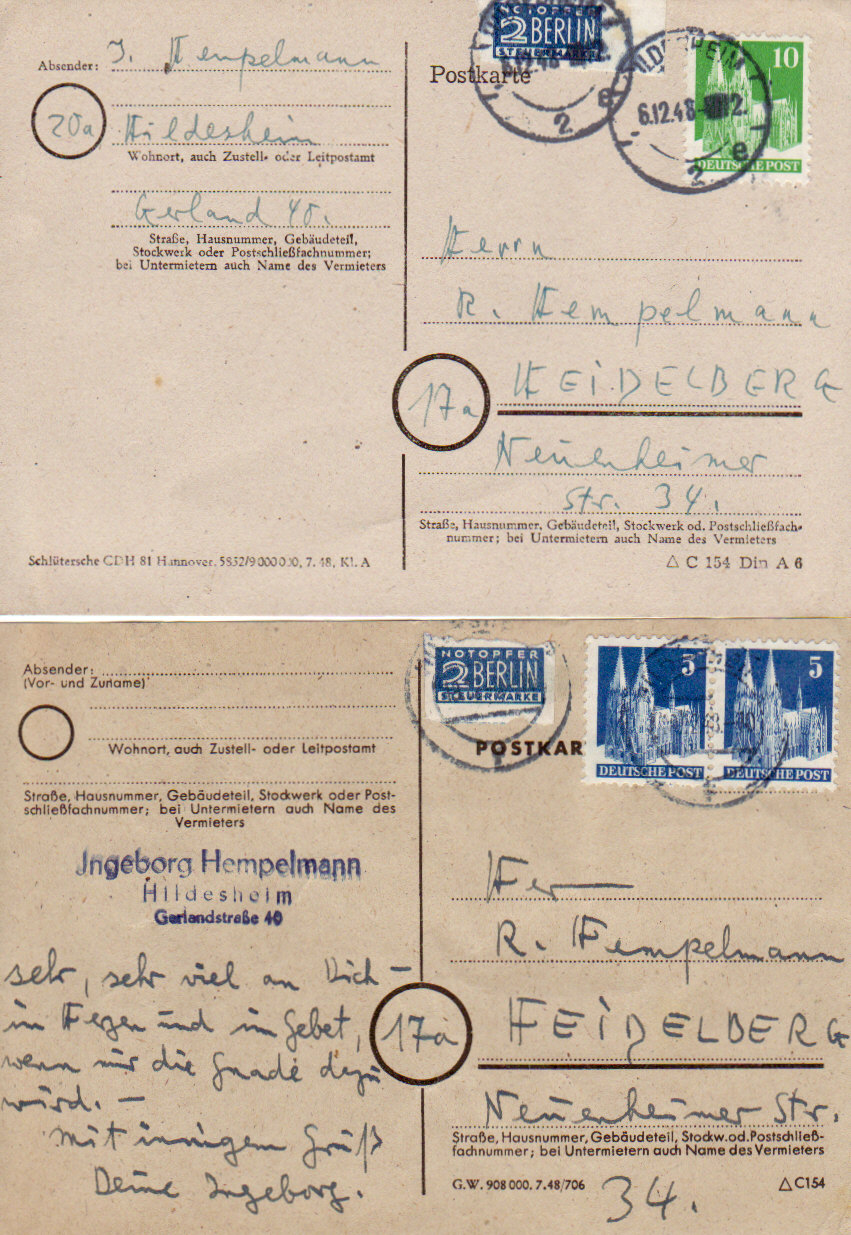 Absender: J. Hempelmann
20a Hildesheim
Wohnort, auch Zustell- oder Leitpostamt
Gerland 40.
Straße, Hausnummer, Gebäudeteil,
Stockwerk oder Postschließfachnummer;
bei Untermietern auch Name des Vermieters
Schlütersche CDH 81 Hannover. 5832/9000000, 7. 48, Kl. A
NOTOPFER
2 BERLIN
STEUERMARKE
Postkarte
HILDESHEIM
6.12.48
2 e
10
DEUTSCHE POST
Herrn
R. Hempelmann
17a HEIDELBERG
Neuenheimer
Str. 34.
Straße, Hausnummer, Gebäudeteil, Stockwerk od. Postschließfach-
nummer; bei Untermietern auch Name des Vermieters
△ C 154 Din A 6
Absender:
(Vor- und Zuname)
Wohnort, auch Zustell- oder Leitpostamt
Straße, Hausnummer, Gebäudeteil, Stockwerk oder Post-
schließfachnummer; bei Untermietern auch Name des
Vermieters
Jngeborg Hempelmann
Hildesheim
Gerlandstraße 40
sehr, sehr viel an Dich –
im Segen und im Gebet,
wenn mir die Gnade dazu
würd. –
Mit innigem Gruß
Deine Ingeborg.
NOTOPFER
2 BERLIN
STEUERMARKE
POSTKAR
5
DEUTSCHE POST
5
DEUTSCHE POST
Herrn
R. Hempelmann
17a HEIDELBERG
Neuenheimer Str.
Straße, Hausnummer, Gebäudeteil, Stockw. od. Postschließ-
fachnummer; bei Untermietern auch Name des Vermieters
G.W. 908 000. 7.48/706
34.
△ C154